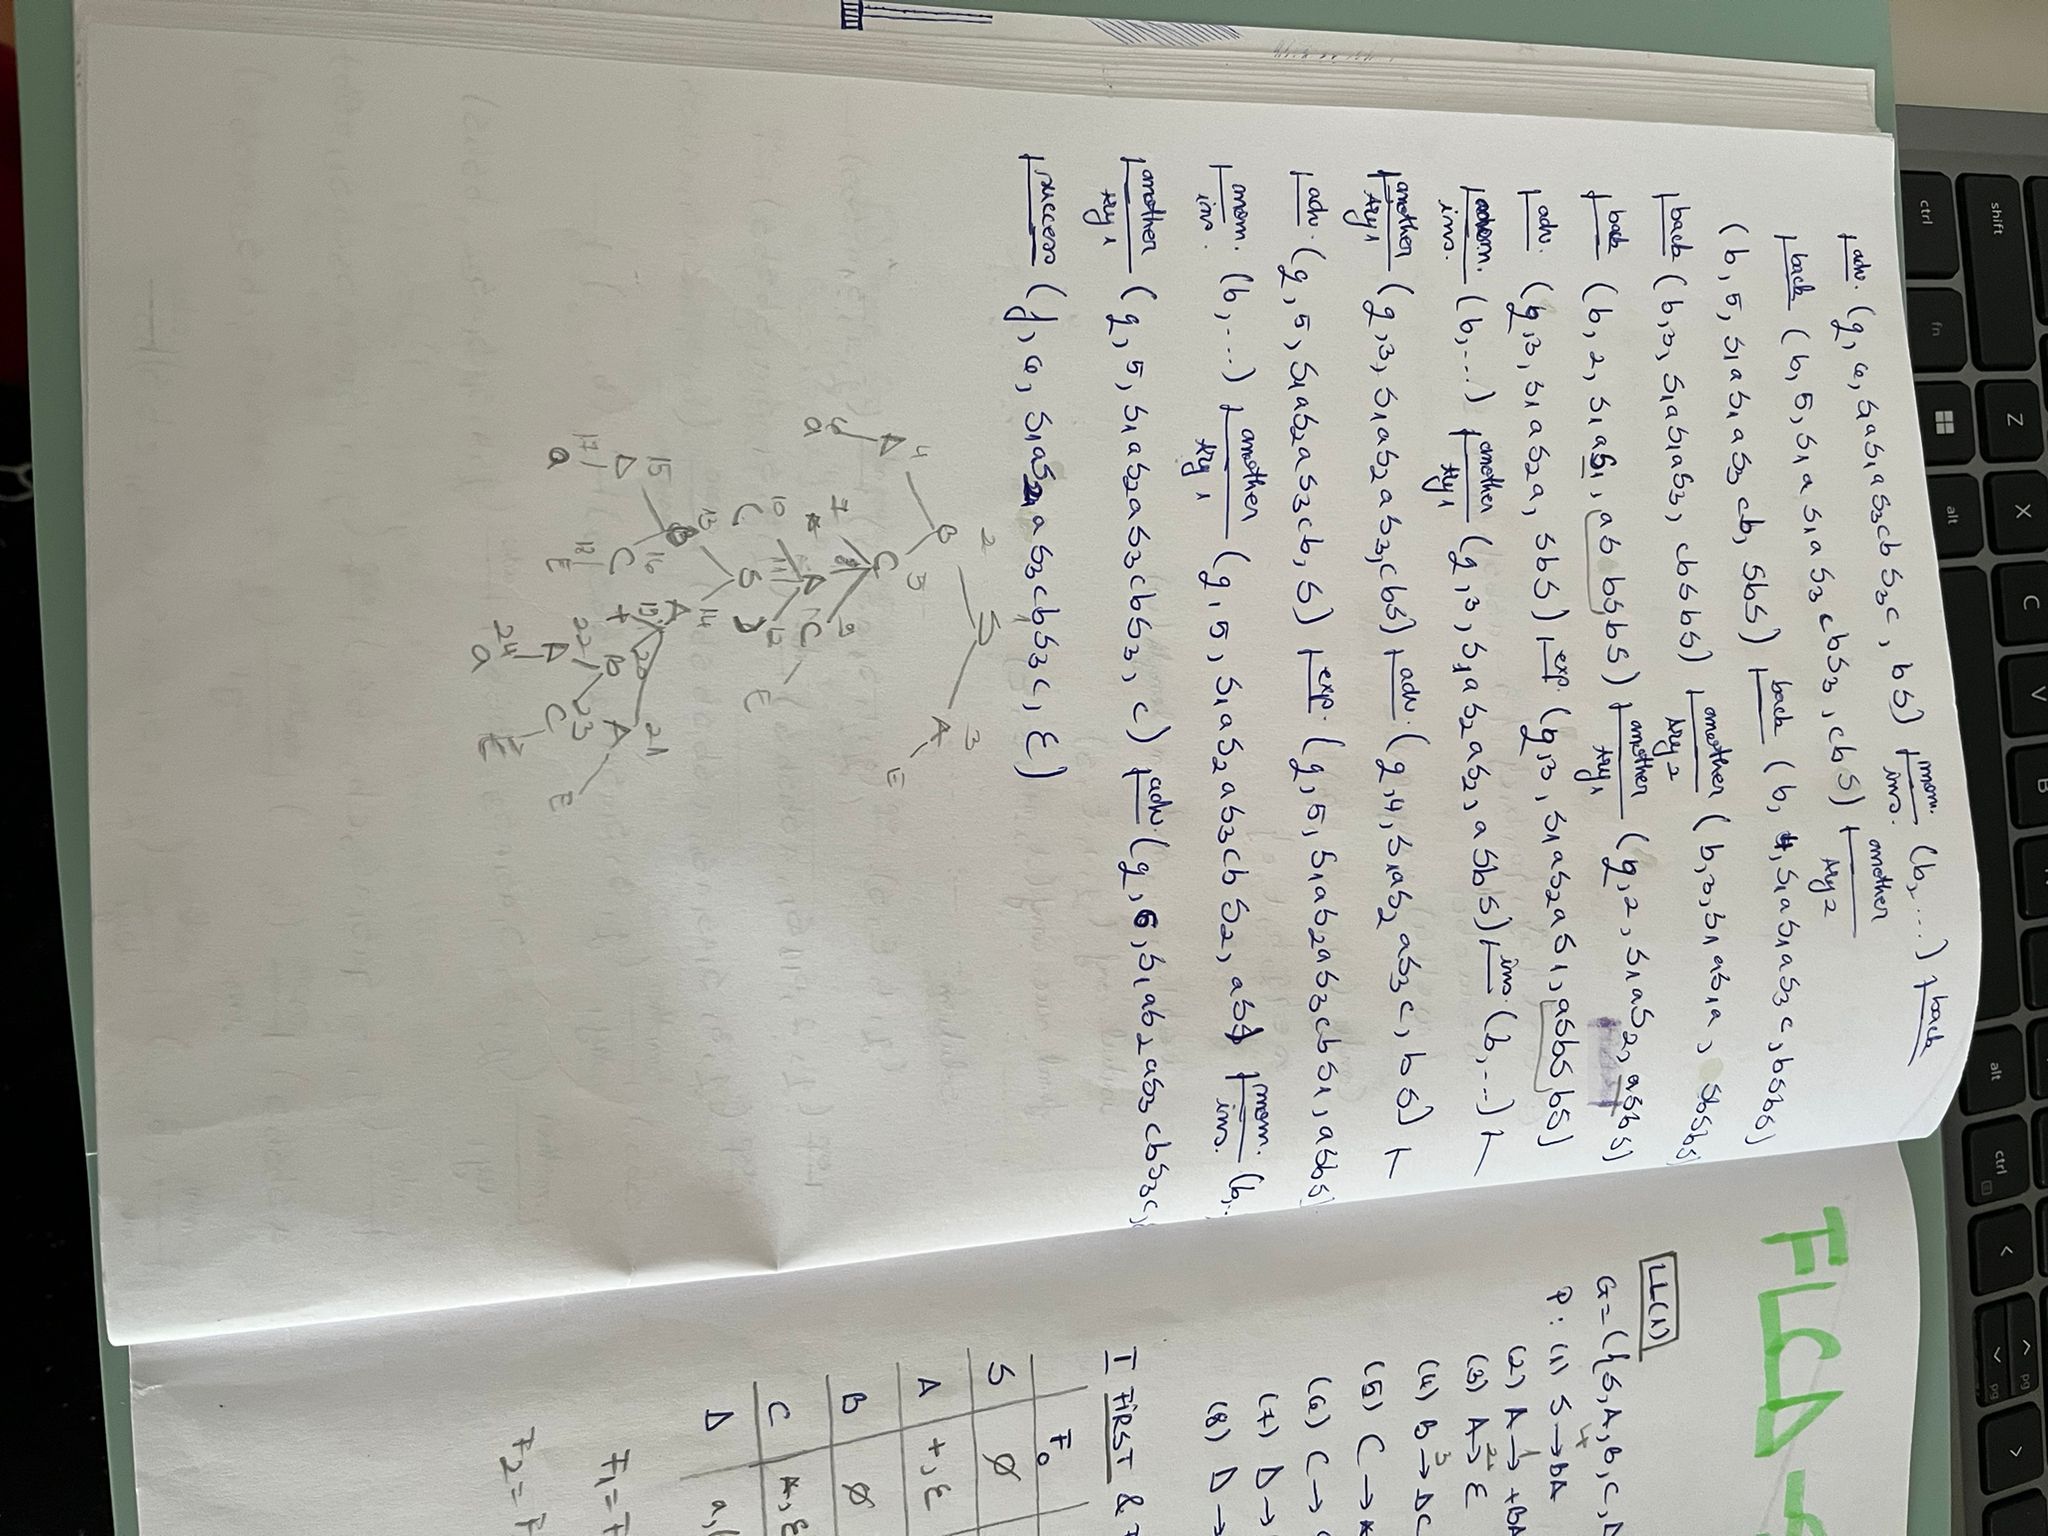 Z X C V B
shift
alt ctrl < ^ pg > 
v pg
ctrl fn alt
|adv. (q, 6, S1aS1aS3cbS3c, bS) |mom. ins. (b, ...) |back
|back (b, 5, S1aS1aS3cbS3, cbS) |another try 2
(b, 5, S1aS1aS3cb, SbS) |back (b, 4, S1aS1aS3c, bSbS)
|back (b, 3, S1aS1aS3, cbSbS) |another try 2 (b, 3, S1aS1a, SbSbS)
|back (b, 2, S1aS1, aSbSbS) |another try 1 (q, 2, S1aS2, aSbS)
|adv. (q, 3, S1aS2a, SbS) |exp. (q, 3, S1aS2aS1, aSbSbS)
|mom. ins. (b, ...) |another try 1 (q, 3, S1aS2aS2, aSbS) |ins. (b, ...) ⊢
|another try 1 (q, 3, S1aS2aS3, cbS) |adv. (q, 4, S1aS2aS3c, bS) ⊢
|adv. (q, 5, S1aS2aS3cb, S) |exp. (q, 5, S1aS2aS3cbS1, aSbS)
|mom. ins. (b, ...) |another try 1 (q, 5, S1aS2aS3cbS2, aS) |mom. ins. (b, ..
|another try 1 (q, 5, S1aS2aS3cbS3, c) |adv. (q, 6, S1aS2aS3cbS3c,
|success (f, 6, S1aS2aS3cbS3c, ε)
1
S
2 3
B A
4 5 ε
D C
6 7 8 9
a * D C
10 11 12 ε
( S )
13 14
B A
15 16 19 20 21
D C + B A
17 18 22 23
a ε D C ε
24
a ε
FLCD -
LL(1)
G = ({S, A, B, C, D
P: (1) S → BA
(2) A → +BA
(3) A → ε
(4) B → DC
(5) C → *
(6) C →
(7) D →
(8) D →
I FIRST & F
F0
S ∅
A +, ε
B ∅
C *, ε
D a, (
F1 = F
F2 = F